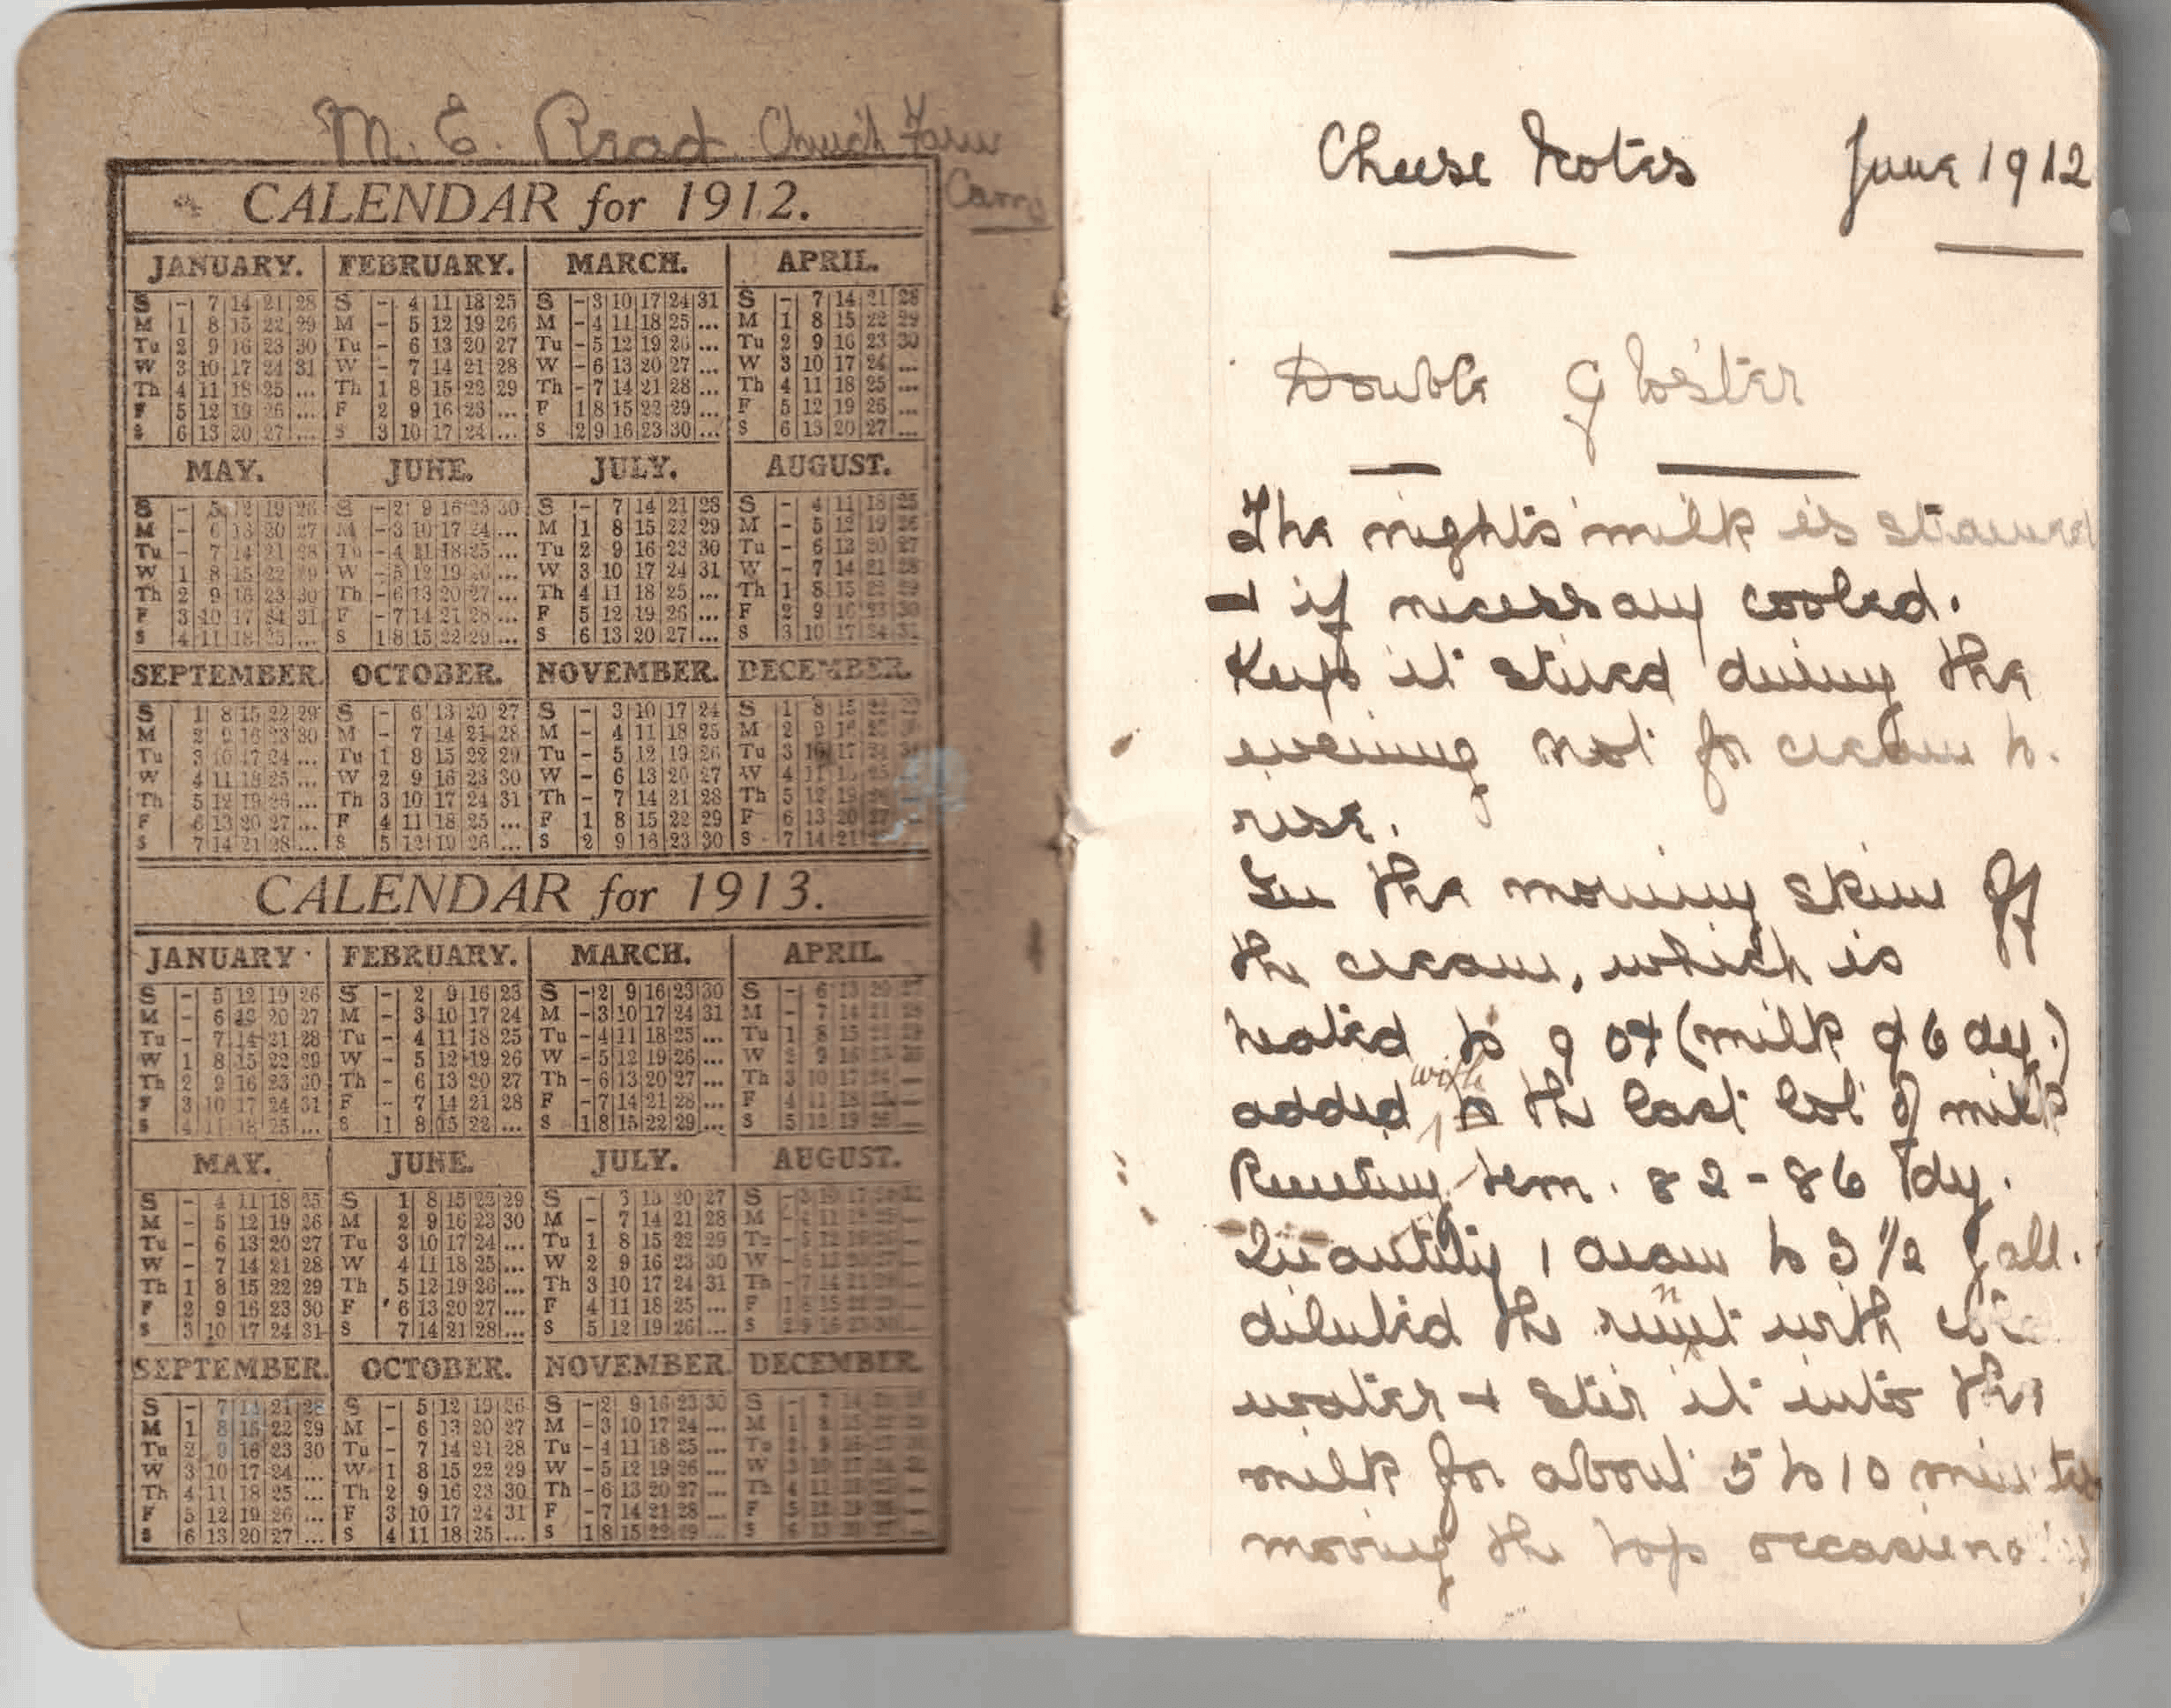 M. E. Read Church Farm
Cam
CALENDAR for 1912.
JANUARY. FEBRUARY. MARCH. APRIL.
S - 7 14 21 28 S - 4 11 18 25 S - 3 10 17 24 31 S - 7 14 21 28
M 1 8 15 22 29 M - 5 12 19 26 M - 4 11 18 25 ... M 1 8 15 22 29
Tu 2 9 16 23 30 Tu - 6 13 20 27 Tu - 5 12 19 26 ... Tu 2 9 16 23 30
W 3 10 17 24 31 W - 7 14 21 28 W - 6 13 20 27 ... W 3 10 17 24 ...
Th 4 11 18 25 ... Th 1 8 15 22 29 Th - 7 14 21 28 ... Th 4 11 18 25 ...
F 5 12 19 26 ... F 2 9 16 23 ... F 1 8 15 22 29 ... F 5 12 19 26 ...
S 6 13 20 27 ... S 3 10 17 24 ... S 2 9 16 23 30 ... S 6 13 20 27 ...
MAY. JUNE. JULY. AUGUST.
S - 5 12 19 26 S - 2 9 16 23 30 S - 7 14 21 28 S - 4 11 18 25
M - 6 13 20 27 M - 3 10 17 24 ... M 1 8 15 22 29 M - 5 12 19 26
Tu - 7 14 21 28 Tu - 4 11 18 25 ... Tu 2 9 16 23 30 Tu - 6 13 20 27
W 1 8 15 22 29 W - 5 12 19 26 ... W 3 10 17 24 31 W - 7 14 21 28
Th 2 9 16 23 30 Th - 6 13 20 27 ... Th 4 11 18 25 ... Th 1 8 15 22 29
F 3 10 17 24 31 F - 7 14 21 28 ... F 5 12 19 26 ... F 2 9 16 23 30
S 4 11 18 25 ... S 1 8 15 22 29 ... S 6 13 20 27 ... S 3 10 17 24 31
SEPTEMBER. OCTOBER. NOVEMBER. DECEMBER.
S 1 8 15 22 29 S - 6 13 20 27 S - 3 10 17 24 S 1 8 15 22 29
M 2 9 16 23 30 M - 7 14 21 28 M - 4 11 18 25 M 2 9 16 23 30
Tu 3 10 17 24 ... Tu 1 8 15 22 29 Tu - 5 12 19 26 Tu 3 10 17 24 31
W 4 11 18 25 ... W 2 9 16 23 30 W - 6 13 20 27 W 4 11 18 25
Th 5 12 19 26 ... Th 3 10 17 24 31 Th - 7 14 21 28 Th 5 12 19 26
F 6 13 20 27 ... F 4 11 18 25 ... F 1 8 15 22 29 F 6 13 20 27
S 7 14 21 28 ... S 5 12 19 26 ... S 2 9 16 23 30 S 7 14 21 28
CALENDAR for 1913.
JANUARY FEBRUARY. MARCH. APRIL.
S - 5 12 19 26 S - 2 9 16 23 S - 2 9 16 23 30 S - 6 13 20 27
M - 6 13 20 27 M - 3 10 17 24 M - 3 10 17 24 31 M - 7 14 21 28
Tu - 7 14 21 28 Tu - 4 11 18 25 Tu - 4 11 18 25 ... Tu 1 8 15 22 29
W 1 8 15 22 29 W - 5 12 19 26 W - 5 12 19 26 ... W 2 9 16 23 30
Th 2 9 16 23 30 Th - 6 13 20 27 Th - 6 13 20 27 ... Th 3 10 17 24 —
F 3 10 17 24 31 F - 7 14 21 28 F - 7 14 21 28 ... F 4 11 18 25 —
S 4 11 18 25 ... S 1 8 15 22 ... S 1 8 15 22 29 ... S 5 12 19 26 —
MAY. JUNE. JULY. AUGUST.
S - 4 11 18 25 S 1 8 15 22 29 S - 6 13 20 27 S - 3 10 17 24 31
M - 5 12 19 26 M 2 9 16 23 30 M - 7 14 21 28 M - 4 11 18 25 —
Tu - 6 13 20 27 Tu 3 10 17 24 ... Tu 1 8 15 22 29 Tu - 5 12 19 26 —
W - 7 14 21 28 W 4 11 18 25 ... W 2 9 16 23 30 W - 6 13 20 27 —
Th 1 8 15 22 29 Th 5 12 19 26 ... Th 3 10 17 24 31 Th - 7 14 21 28 —
F 2 9 16 23 30 F 6 13 20 27 ... F 4 11 18 25 ... F 1 8 15 22 29 —
S 3 10 17 24 31 S 7 14 21 28 ... S 5 12 19 26 ... S 2 9 16 23 30 —
SEPTEMBER. OCTOBER. NOVEMBER. DECEMBER.
S - 7 14 21 28 S - 5 12 19 26 S - 2 9 16 23 30 S - 7 14 21 28
M 1 8 15 22 29 M - 6 13 20 27 M - 3 10 17 24 ... M 1 8 15 22 29
Tu 2 9 16 23 30 Tu - 7 14 21 28 Tu - 4 11 18 25 ... Tu 2 9 16 23 30
W 3 10 17 24 ... W 1 8 15 22 29 W - 5 12 19 26 ... W 3 10 17 24 31
Th 4 11 18 25 ... Th 2 9 16 23 30 Th - 6 13 20 27 ... Th 4 11 18 25 —
F 5 12 19 26 ... F 3 10 17 24 31 F - 7 14 21 28 ... F 5 12 19 26 —
S 6 13 20 27 ... S 4 11 18 25 ... S 1 8 15 22 29 ... S 6 13 20 27 —
Cheese Notes June 1912
Double Gloster
The night's milk is strained
& if necessary cooled.
Keep it stired during the
evening not for cream to.
rise.
In the morning skim off
the cream, which is
heated to 90 (milk
added with to the last lot of milk
Renneting tem. 82-86 dy.
Quantity 1 dram to 3 1/2 gall.
diluted the rennet with
water & stir it into the
milk for about 5 to 10 minutes
moving the top occasionally